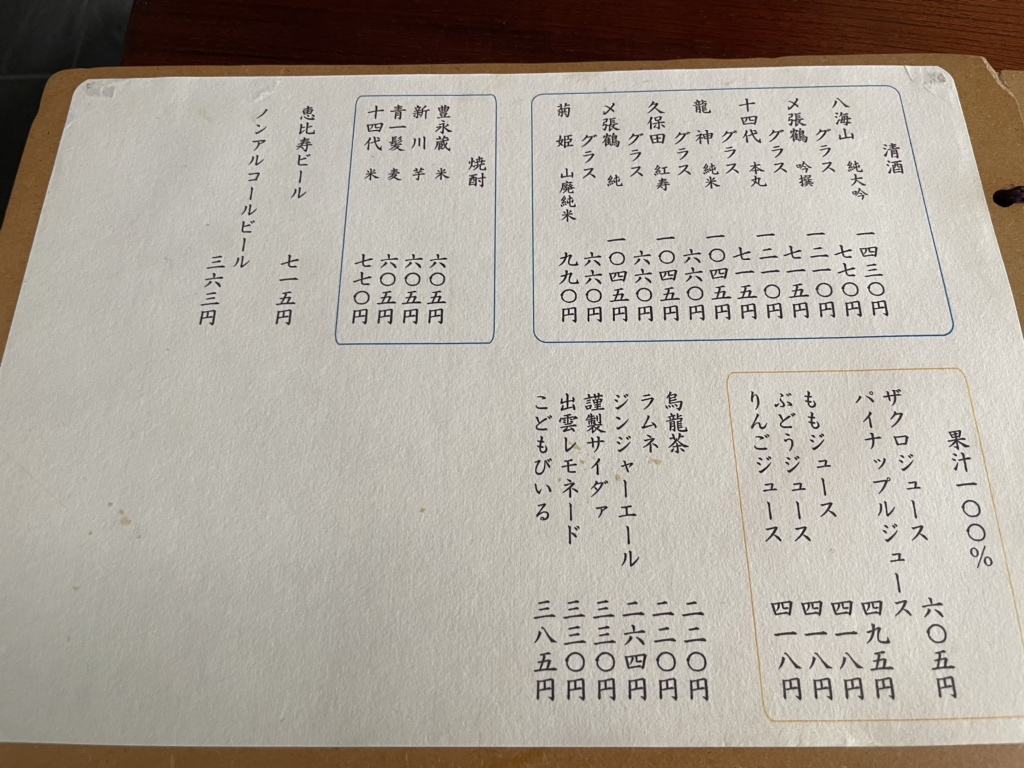 清酒
八海山 純大吟 一四三〇円
グラス 七七〇円
〆張鶴 吟撰 一二一〇円
グラス 七一五円
十四代 本丸 一二一〇円
グラス 七一五円
龍神 純米 一〇四五円
グラス 六六〇円
久保田 紅寿 一〇四五円
グラス 六六〇円
〆張鶴 純 一〇四五円
グラス 六六〇円
菊姫 山廃純米 九九〇円
焼酎
豊永蔵 米 六〇五円
新川 芋 六〇五円
青一髪 麦 六〇五円
十四代 米 七七〇円
恵比寿ビール 七一五円
ノンアルコールビール 三六三円
果汁一〇〇%
ザクロジュース 六〇五円
パイナップルジュース 四九五円
ももジュース 四一八円
ぶどうジュース 四一八円
りんごジュース 四一八円
烏龍茶 二二〇円
ラムネ 二二〇円
ジンジャーエール 二六四円
謹製サイダァ 三三〇円
出雲レモネード 三三〇円
こどもびいる 三八五円